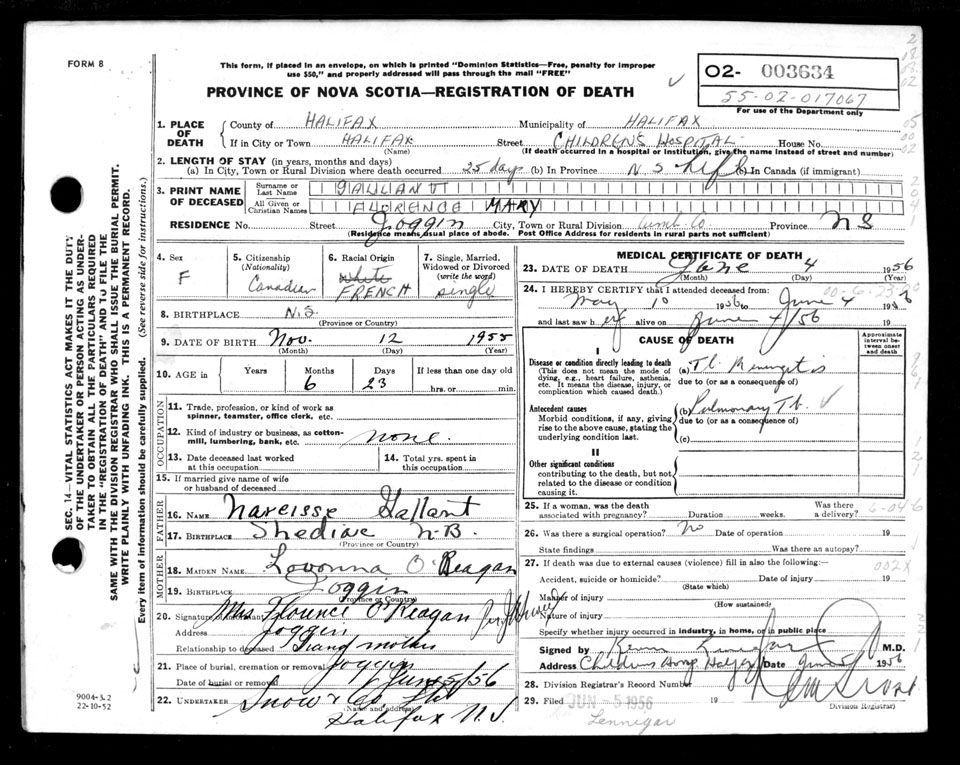 FORM 8
This form, if placed in an envelope, on which is printed "Dominion Statistics—Free, penalty for improper
use $50," and properly addressed will pass through the mail "FREE"
PROVINCE OF NOVA SCOTIA—REGISTRATION OF DEATH
02- 003634
55-02-017067
For use of the Department only
SEC. 14—VITAL STATISTICS ACT MAKES IT THE DUTY
OF THE UNDERTAKER OR PERSON ACTING AS UNDER-
TAKER TO OBTAIN ALL THE PARTICULARS REQUIRED
IN THE "REGISTRATION OF DEATH" AND TO FILE THE
SAME WITH THE DIVISION REGISTRAR WHO SHALL ISSUE THE BURIAL PERMIT.
WRITE PLAINLY WITH UNFADING INK. THIS IS A PERMANENT RECORD.
Every item of information should be carefully supplied. (See reverse side for instructions.)
1. PLACE OF DEATH
County of HALIFAX Municipality of HALIFAX
If in City or Town HALIFAX Street CHILDRENS HOSPITAL House No.
(Name) (If death occurred in a hospital or institution, give the name instead of street and number)
2. LENGTH OF STAY (in years, months and days)
(a) In City, Town or Rural Division where death occurred 25 days (b) In Province N S Life (c) In Canada (if immigrant)
3. PRINT NAME OF DECEASED
Surname or Last Name GALLANT
All Given or Christian Names FLORENCE MARY
RESIDENCE No. Street Joggin City, Town or Rural Division Cumb Co. Province NS
(Residence means usual place of abode. Post Office Address for residents in rural parts not sufficient)
4. Sex F
5. Citizenship (Nationality) Canadian
6. Racial Origin White FRENCH
7. Single, Married, Widowed or Divorced (write the word) single
8. BIRTHPLACE N.S.
(Province or Country)
9. DATE OF BIRTH Nov. 12 1955
(Month) (Day) (Year)
10. AGE in Years Months 6 Days 23 If less than one day old hrs. or min.
OCCUPATION
11. Trade, profession, or kind of work as spinner, teamster, office clerk, etc.
12. Kind of industry or business, as cotton-mill, lumbering, bank, etc. none.
13. Date deceased last worked at this occupation
14. Total yrs. spent in this occupation
15. If married give name of wife or husband of deceased
FATHER
16. NAME Narcisse Gallant
17. BIRTHPLACE Shediac N.B.
(Province or Country)
MOTHER
18. MAIDEN NAME Lovonna O'Reagan
19. BIRTHPLACE Joggin
(Province or Country)
20. Signature of Informant Mrs Florence O'Reagan
Address Joggin
Relationship to deceased Grand mother
21. Place of burial, cremation or removal Joggin
Date of burial or removal June 5/56
22. UNDERTAKER Snow & Co
(Name and address)
Halifax N.S.
9004-3.2
22-10-52
MEDICAL CERTIFICATE OF DEATH
23. DATE OF DEATH June 4 1956
(Month) (Day) (Year)
24. I HEREBY CERTIFY that I attended deceased from:
May 10 1956 to June 4 1956
and last saw her alive on June 4/56
CAUSE OF DEATH
Approximate interval between onset and death
I
Disease or condition directly leading to death
(This does not mean the mode of dying, e.g., heart failure, asthenia, etc. It means the disease, injury, or complication which caused death.)
(a) Tb. Meningitis
due to (or as a consequence of)
Antecedent causes
Morbid conditions, if any, giving rise to the above cause, stating the underlying condition last.
(b) Pulmonary Tb.
due to (or as a consequence of)
(c)
II
Other significant conditions
contributing to the death, but not related to the disease or condition causing it.
25. If a woman, was the death associated with pregnancy? Duration weeks. Was there a delivery?
26. Was there a surgical operation? No Date of operation 19
State findings Was there an autopsy?
27. If death was due to external causes (violence) fill in also the following:—
Accident, suicide or homicide? Date of injury 19
(State which)
Manner of injury
(How sustained)
Nature of injury
Specify whether injury occurred in industry, in home, or in public place
Signed by M.D.
Address Childrens Hosp Halifax Date June 5 1956
28. Division Registrar's Record Number
29. Filed JUN -5 1956 19
Division Registrar